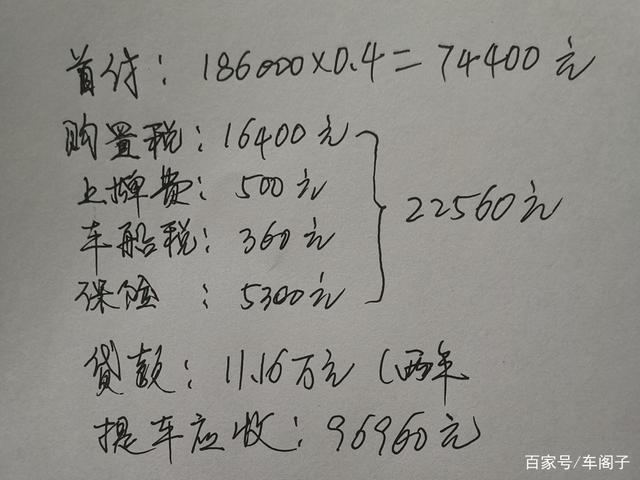 首付：186000×0.4=74400元
购置税：16400元
上牌费：500元
22560元
车船税：360元
保险：5300元
贷款：11.16万元（两年
提车应收：96960元
百家号/车阁子